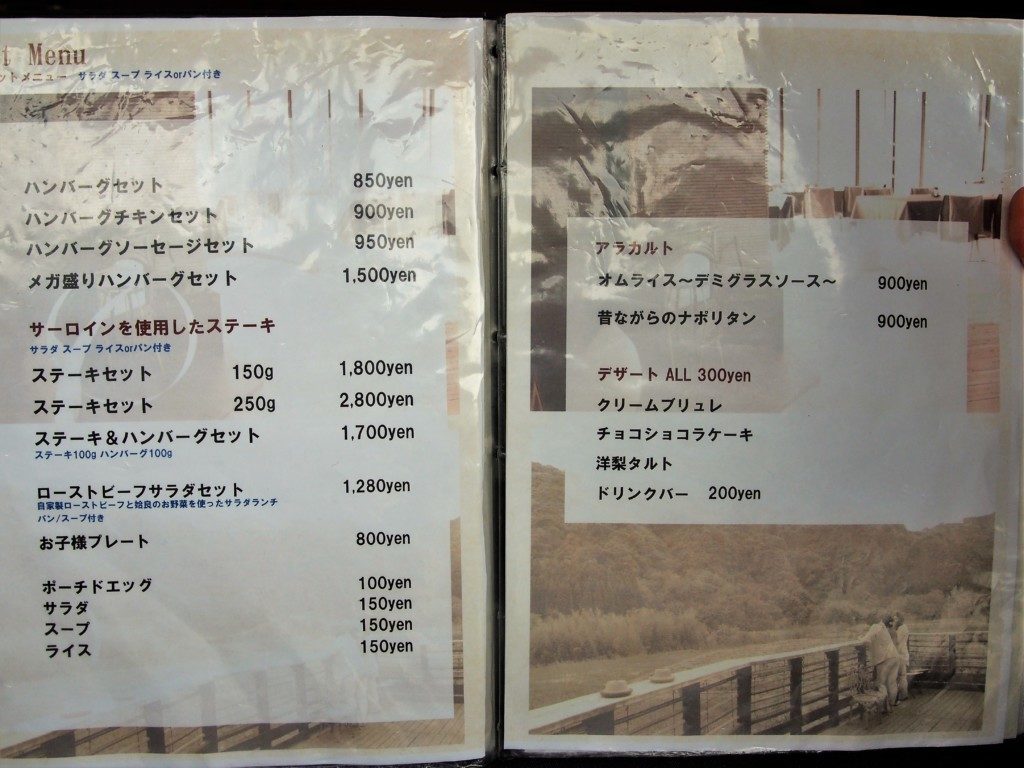 t Menu
ットメニュー サラダ スープ ライスorパン付き
ハンバーグセット 850yen
ハンバーグチキンセット 900yen
ハンバーグソーセージセット 950yen
メガ盛りハンバーグセット 1,500yen
サーロインを使用したステーキ
サラダ スープ ライスorパン付き
ステーキセット 150g 1,800yen
ステーキセット 250g 2,800yen
ステーキ&ハンバーグセット 1,700yen
ステーキ100g ハンバーグ100g
ローストビーフサラダセット 1,280yen
自家製ローストビーフと姶良のお野菜を使ったサラダランチ
パン/スープ付き
お子様プレート 800yen
ポーチドエッグ 100yen
サラダ 150yen
スープ 150yen
ライス 150yen
アラカルト
オムライス～デミグラスソース～ 900yen
昔ながらのナポリタン 900yen
デザート ALL 300yen
クリームブリュレ
チョコショコラケーキ
洋梨タルト
ドリンクバー 200yen